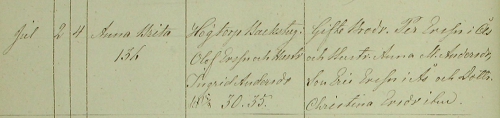 Jul 2 4 Anna Brita Högtorp Backstug: Gifte Brodr. Per Ersson i Ås
136 Olof Ersson och Hustr och Hustr Anna M. Andersdr,
Ingrid Andersdr Son Eric Ersson i Ås och Dottr.
30. 35. Christina Ersdr ibm.